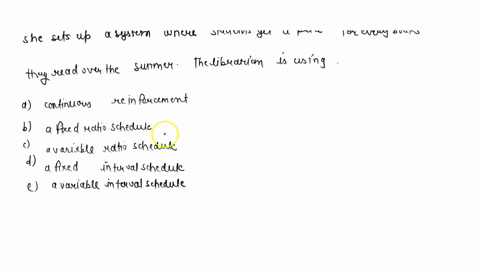 she sets up a system where students get a for every books
they read over the summer. The librarian is using.
a) continuous reinforcement
b) a fixed ratio schedule
c) a variable ratio schedule
d) a fixed interval schedule
e) a variable interval schedule